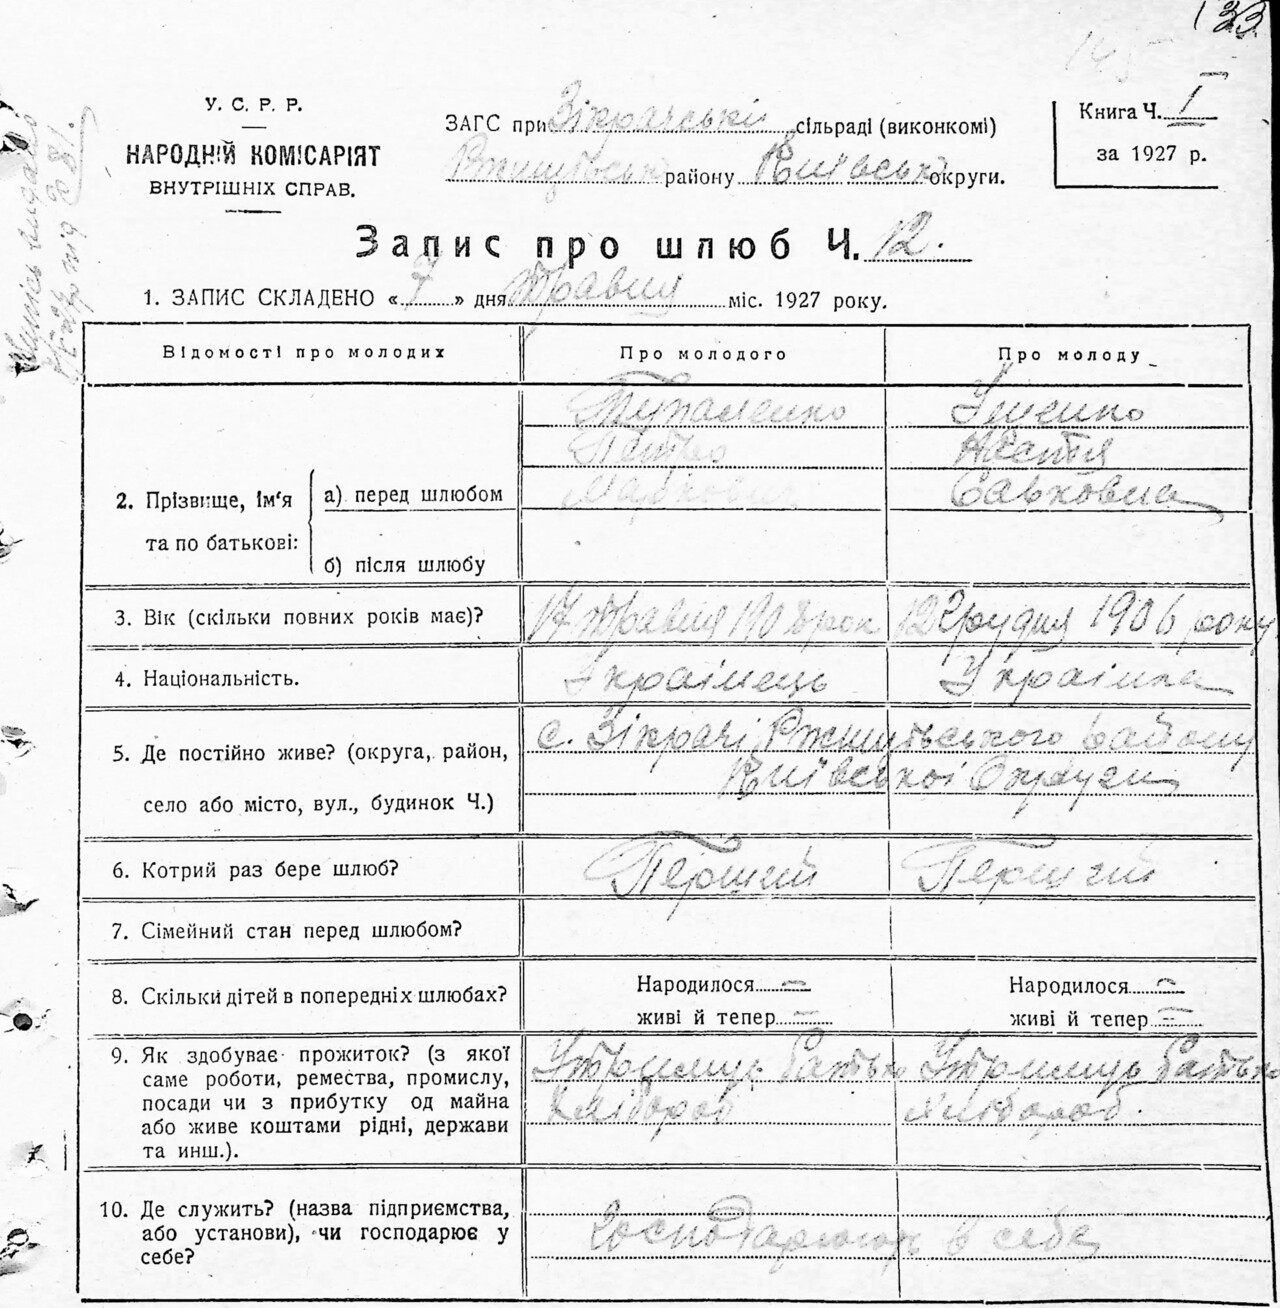 133
145
У. С. Р. Р.
НАРОДНІЙ КОМІСАРІЯТ
ВНУТРІШНІХ СПРАВ.
ЗАГС при Зікрачській сільраді (виконкомі)
Ржищівськ району Київськ округи.
Книга Ч. I
за 1927 р.
Запис про шлюб Ч. 12.
1. ЗАПИС СКЛАДЕНО « 7 » дня Травня міс. 1927 року.
Відомості про молодих Про молодого Про молоду
2. Прізвище, ім'я та по батькові:
а) перед шлюбом
б) після шлюбу
Петро
Маркович
Настя
Савковна
3. Вік (скільки повних років має)? 17 Травня 1908 рок 12 Грудня 1906 року
4. Національність. Українець Українка
5. Де постійно живе? (округа, район,
село або місто, вул., будинок Ч.)
с. Зікрачі Ржищівського району
Київської Округи
6. Котрий раз бере шлюб? Перший Перший
7. Сімейний стан перед шлюбом?
8. Скільки дітей в попередніх шлюбах? Народилося — Народилося —
живі й тепер — живі й тепер —
9. Як здобуває прожиток? (з якої
саме роботи, ремества, промислу,
посади чи з прибутку од майна
або живе коштами рідні, держави
та инш.).
Утримує батько
Хлібороб
Утримує батько
Хлібороб
10. Де служить? (назва підприємства,
або установи), чи господарює у
себе?
Господарюють в себе